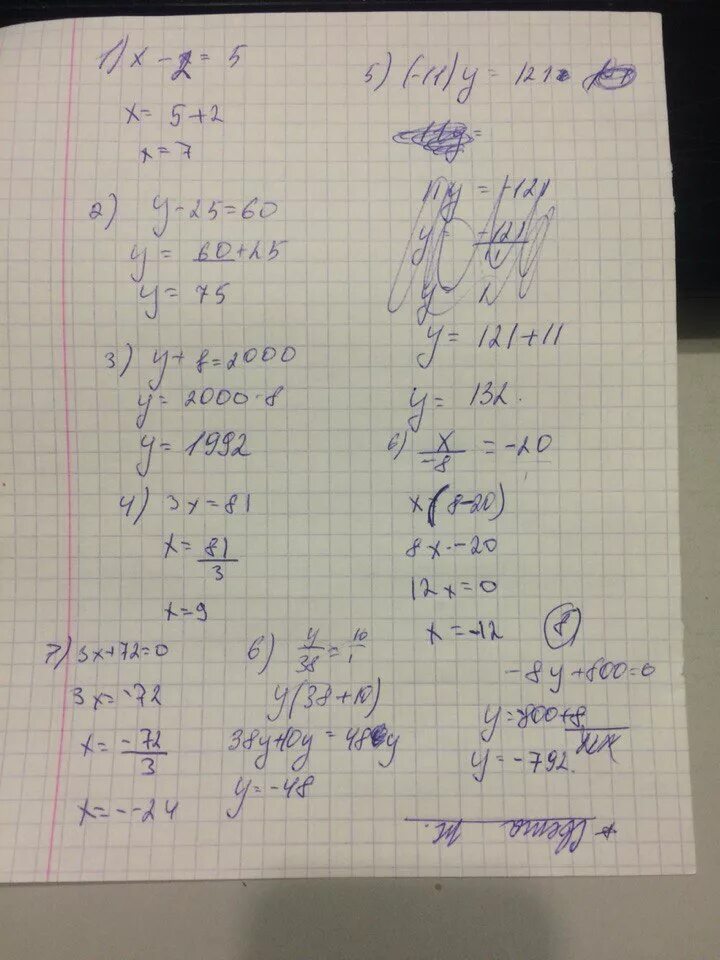 1) x - 2 = 5
x = 5 + 2
x = 7
2) y - 25 = 60
y = 60 + 25
y = 75
3) y + 8 = 2000
y = 2000 - 8
y = 1992
4) 3x = 81
x = 81/3
x = 9
5) (-11) y = 121
11y =
11y = -121
y = -121/11
y =
y = 121 + 11
y = 132.
6) x/-8 = -20
x (8-20)
8x - 20
12x = 0
x = -12
7) 3x + 72 = 0
3x = -72
x = -72/3
x = - -24
6) y/38 = 10/1
y (38 + 10)
38y + 10y = 48y
y = -48
8
-8y + 800 = 0
y = 800 + 8
y = -792.